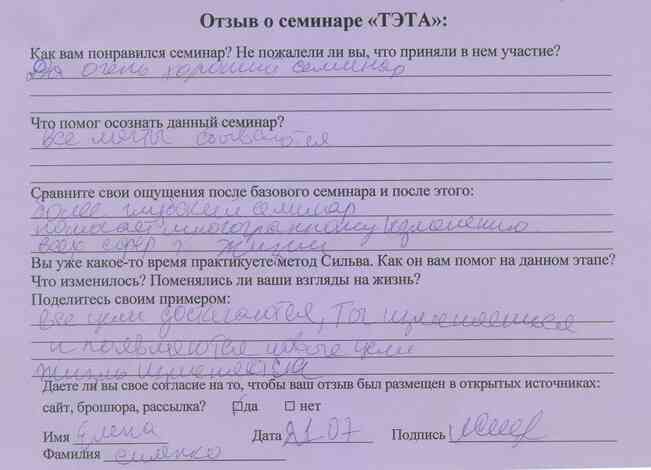 Отзыв о семинаре «ТЭТА»:
Как вам понравился семинар? Не пожалели ли вы, что приняли в нем участие?
Да очень хороший семинар
Что помог осознать данный семинар?
Все мечты сбываются
Сравните свои ощущения после базового семинара и после этого:
более глубокий семинар
помогает многогранному изменению
всех сфер жизни
Вы уже какое-то время практикуете метод Сильва. Как он вам помог на данном этапе?
Что изменилось? Поменялись ли ваши взгляды на жизнь?
Поделитесь своим примером:
Все цели достигаются, ты изменяешься
и появляются новые цели
жизнь изменяется
Даете ли вы свое согласие на то, чтобы ваш отзыв был размещен в открытых источниках:
сайт, брошюра, рассылка? да нет
Имя Елена Дата 21.07 Подпись
Фамилия